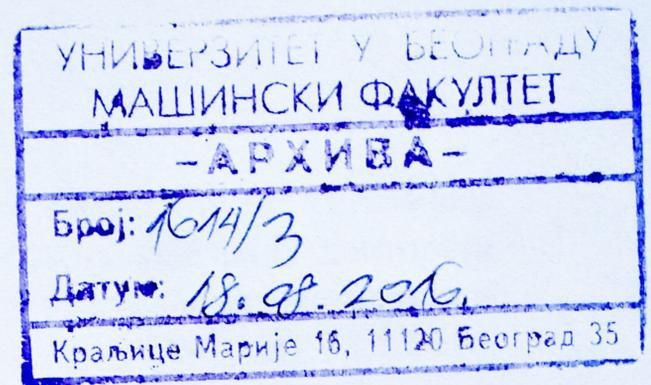 УНИВЕРЗИТЕТ У БЕОГРАДУ
МАШИНСКИ ФАКУЛТЕТ
-АРХИВА-
Број: 1614/3
Датум: 18.08.2016.
Краљице Марије 16, 11120 Београд 35